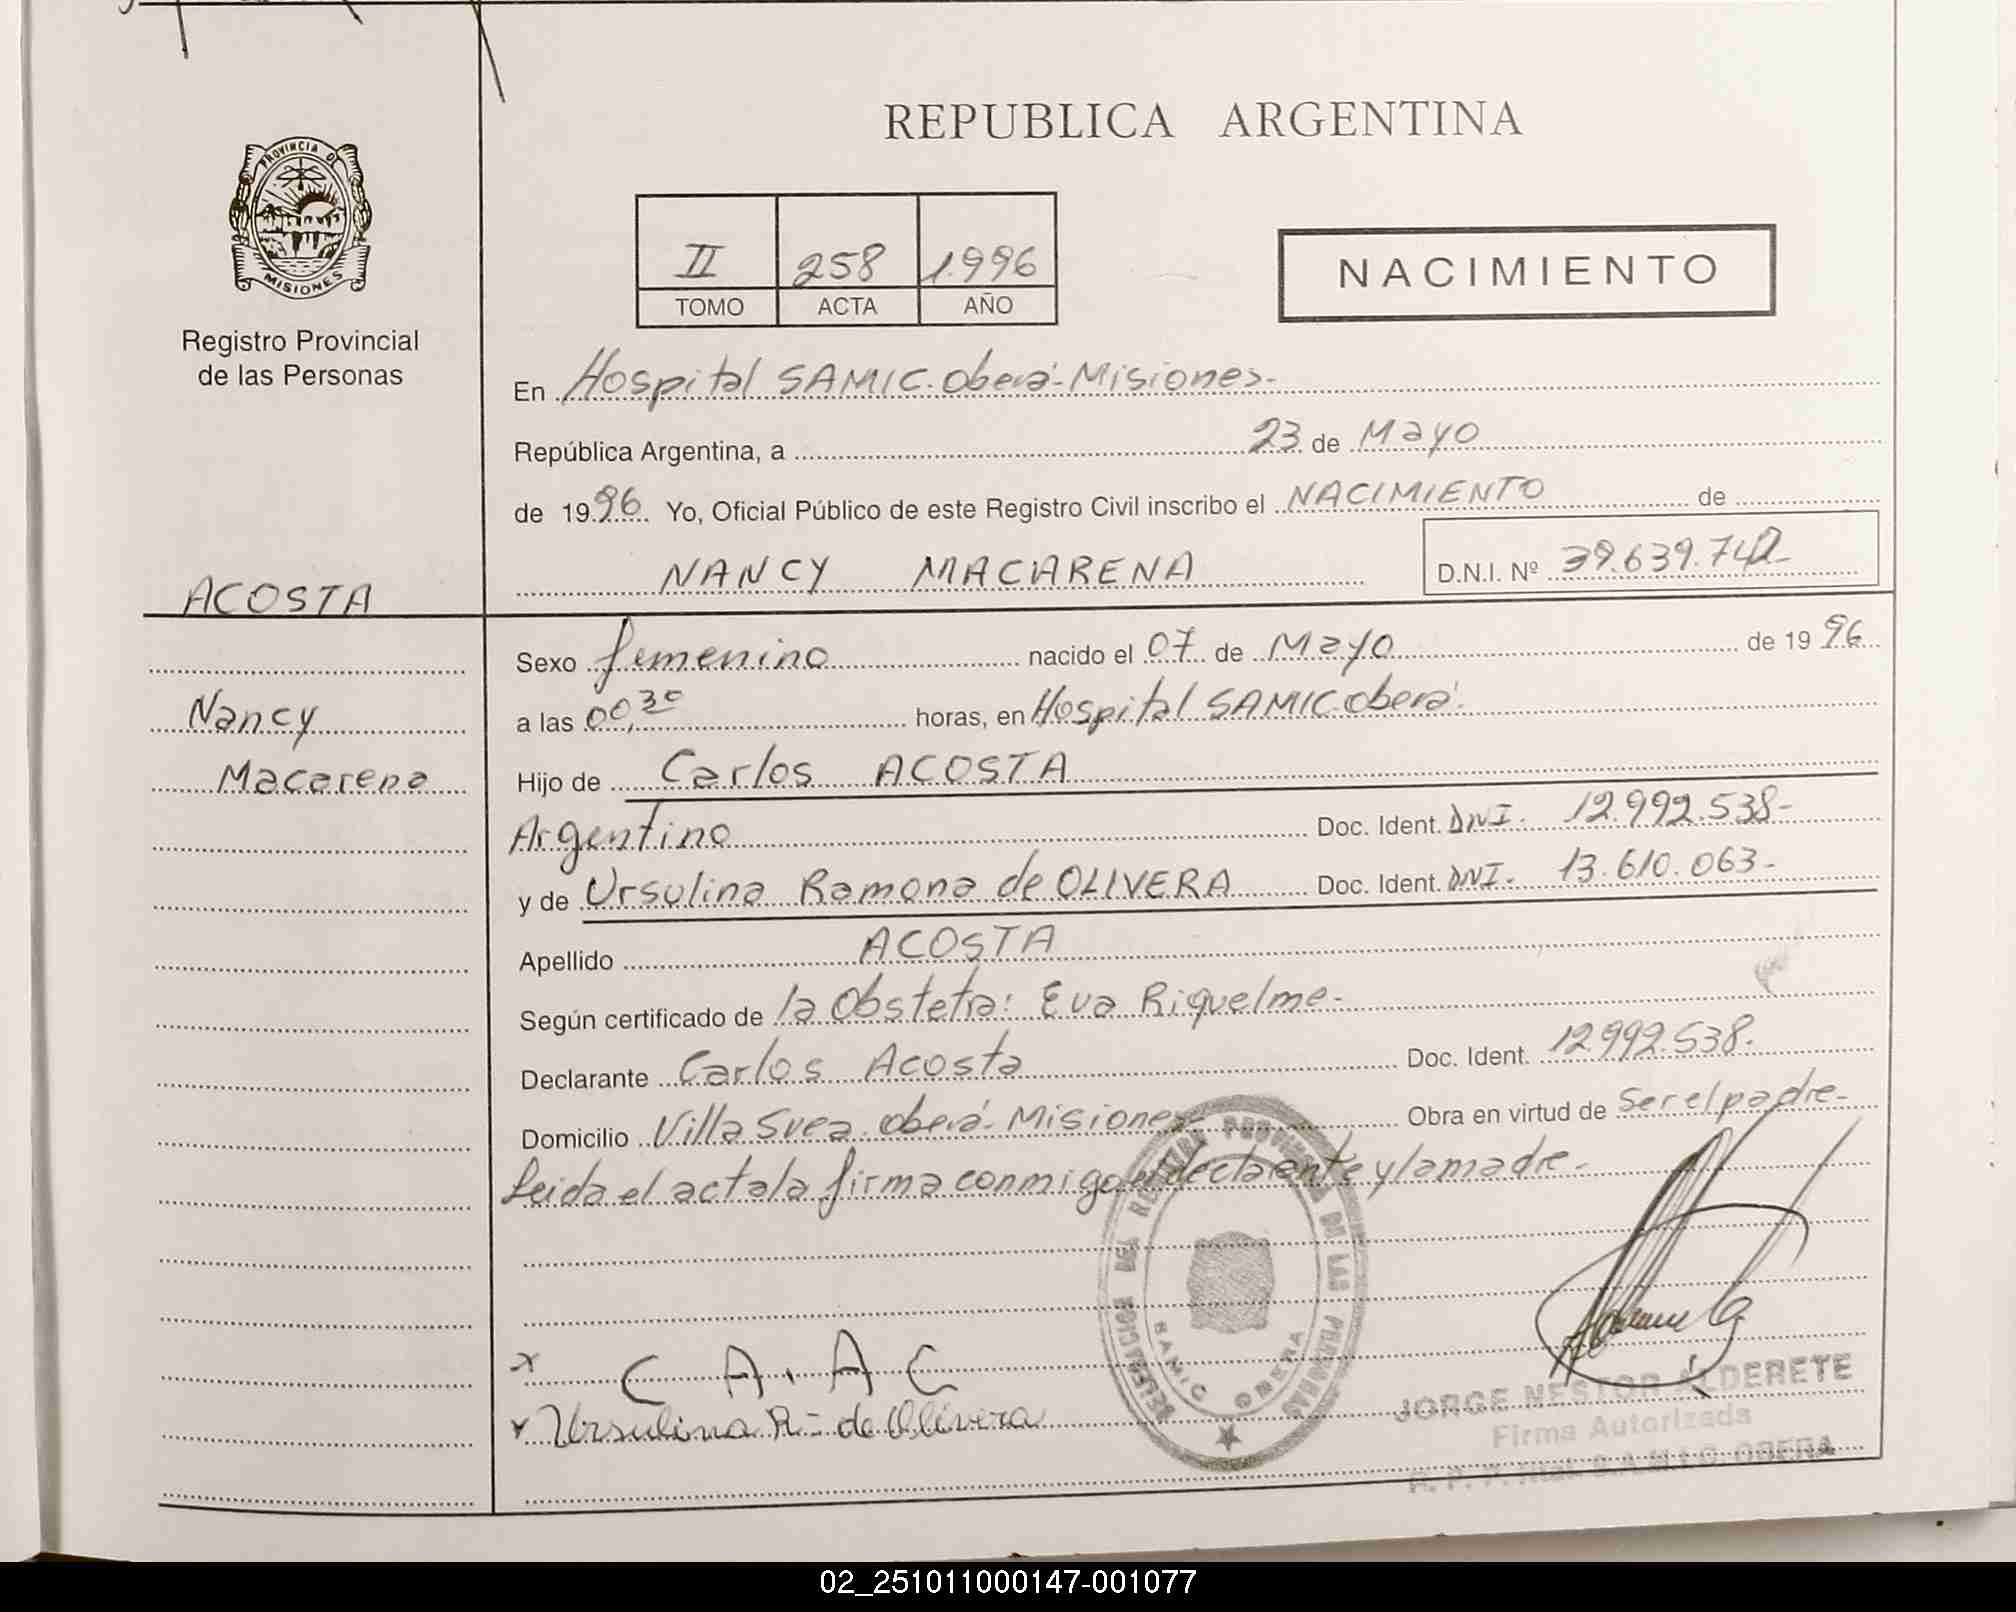 REPUBLICA ARGENTINA
PROVINCIA DE
MISIONES
Registro Provincial
de las Personas
II 258 1996
TOMO ACTA AÑO
NACIMIENTO
En Hospital SAMIC. Oberá-Misiones-
República Argentina, a 23 de Mayo
de 1996 Yo, Oficial Público de este Registro Civil inscribo el NACIMIENTO de
NANCY MACARENA D.N.I. Nº 39.639.742-
ACOSTA
Nancy
Macarena
Sexo femenino nacido el 07 de Mayo de 1996
a las 00,30 horas, en Hospital SAMIC. Oberá.
Hijo de Carlos ACOSTA
Argentino Doc. Ident. DNI. 12.992.538-
y de Ursulina Ramona de OLIVERA Doc. Ident. DNI. 13.610.063-
Apellido ACOSTA
Según certificado de la Obstetra: Eva Riquelme-
Declarante Carlos Acosta Doc. Ident. 12.992.538.
Domicilio Villa Svea. Oberá-Misiones- Obra en virtud de ser el padre-
Leida el acta la firma conmigo el declarante y la madre-
DELEGACION DEL REGISTRO PROVINCIAL DE LAS PERSONAS
SAMIC OBERA
x C A. A C
x Ursulina R- de Olivera
JORGE NESTOR ALDERETE
Firma Autorizada
R. P. P. S.A.M.I.C. OBERA
02_251011000147-001077